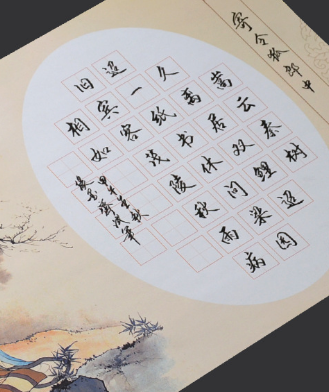 寄令狐郎中
嵩云秦树
久离居双鲤迢
迢一纸书休问梁园
旧宾客茂陵秋雨病
相如
甲午年秋